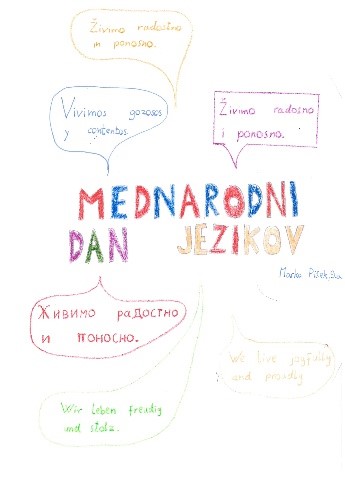 Živimo radostno
in ponosno.
Vivimos gozosos
y contentus.
Živimo radosno
i ponosno.
MEDNARODNI
DAN JEZIKOV
Živimo радостно
и поносно.
We live joyfully
and proudly
Wir leben freudig
und stolz.